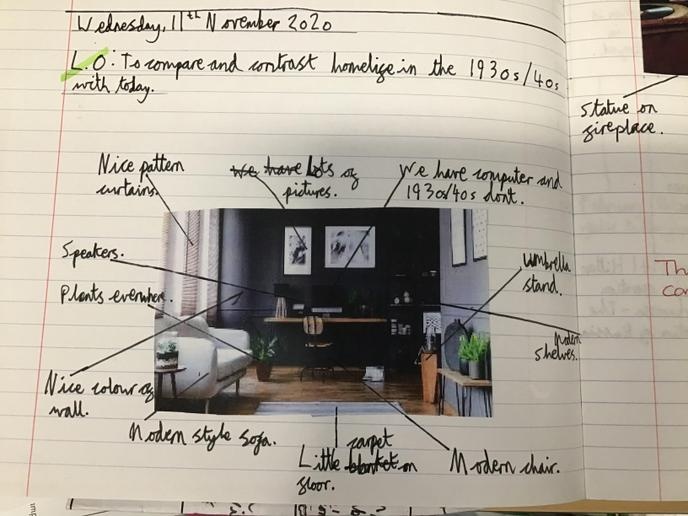 Wednesday, 11th November 2020
L.O: To compare and contrast homelife in the 1930s/40s
with today.
Statue on
fireplace.
Nice pattern
curtains.
We have Lots of
pictures.
We have computer and
1930s/40s dont.
Speakers.
Umbrella
stand.
Plants everwhere.
Modern
shelves.
Nice colour of
wall.
Modern style sofa.
Little carpet
blanket on
floor.
Modern chair.
Th
co